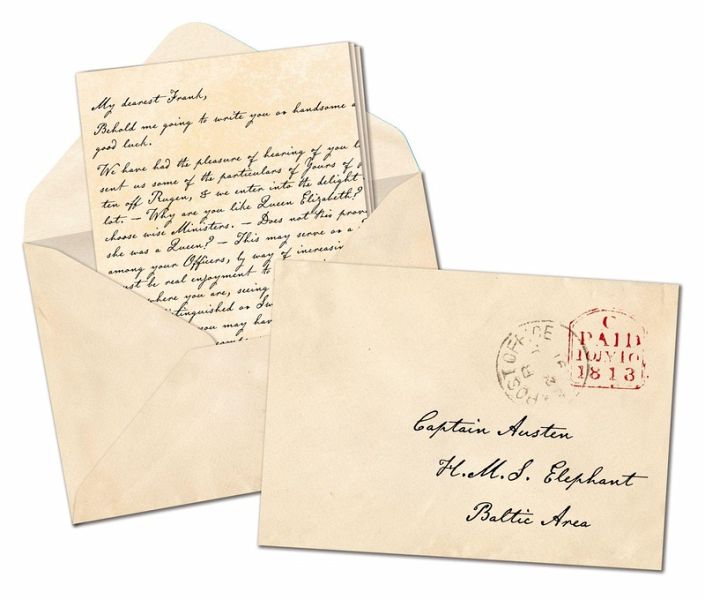 My dearest Frank,
Behold me going to write you as handsome a
good luck.
We have had the pleasure of hearing of you l
sent us some of the particulars of Yours of
ten off Rugen, & we enter into the delight
lot. — Why are you like Queen Elizabeth?
choose wise Ministers. — Does not this prov
she was a Queen? — This may serve as a
among your Officers, by way of increasin
st be real enjoyment to
here you are, seeing
tinguished as Sw
you may hav
POST OFFICE
C
PAID
10JY10
1813
Captain Austen
H.M.S. Elephant
Baltic Area